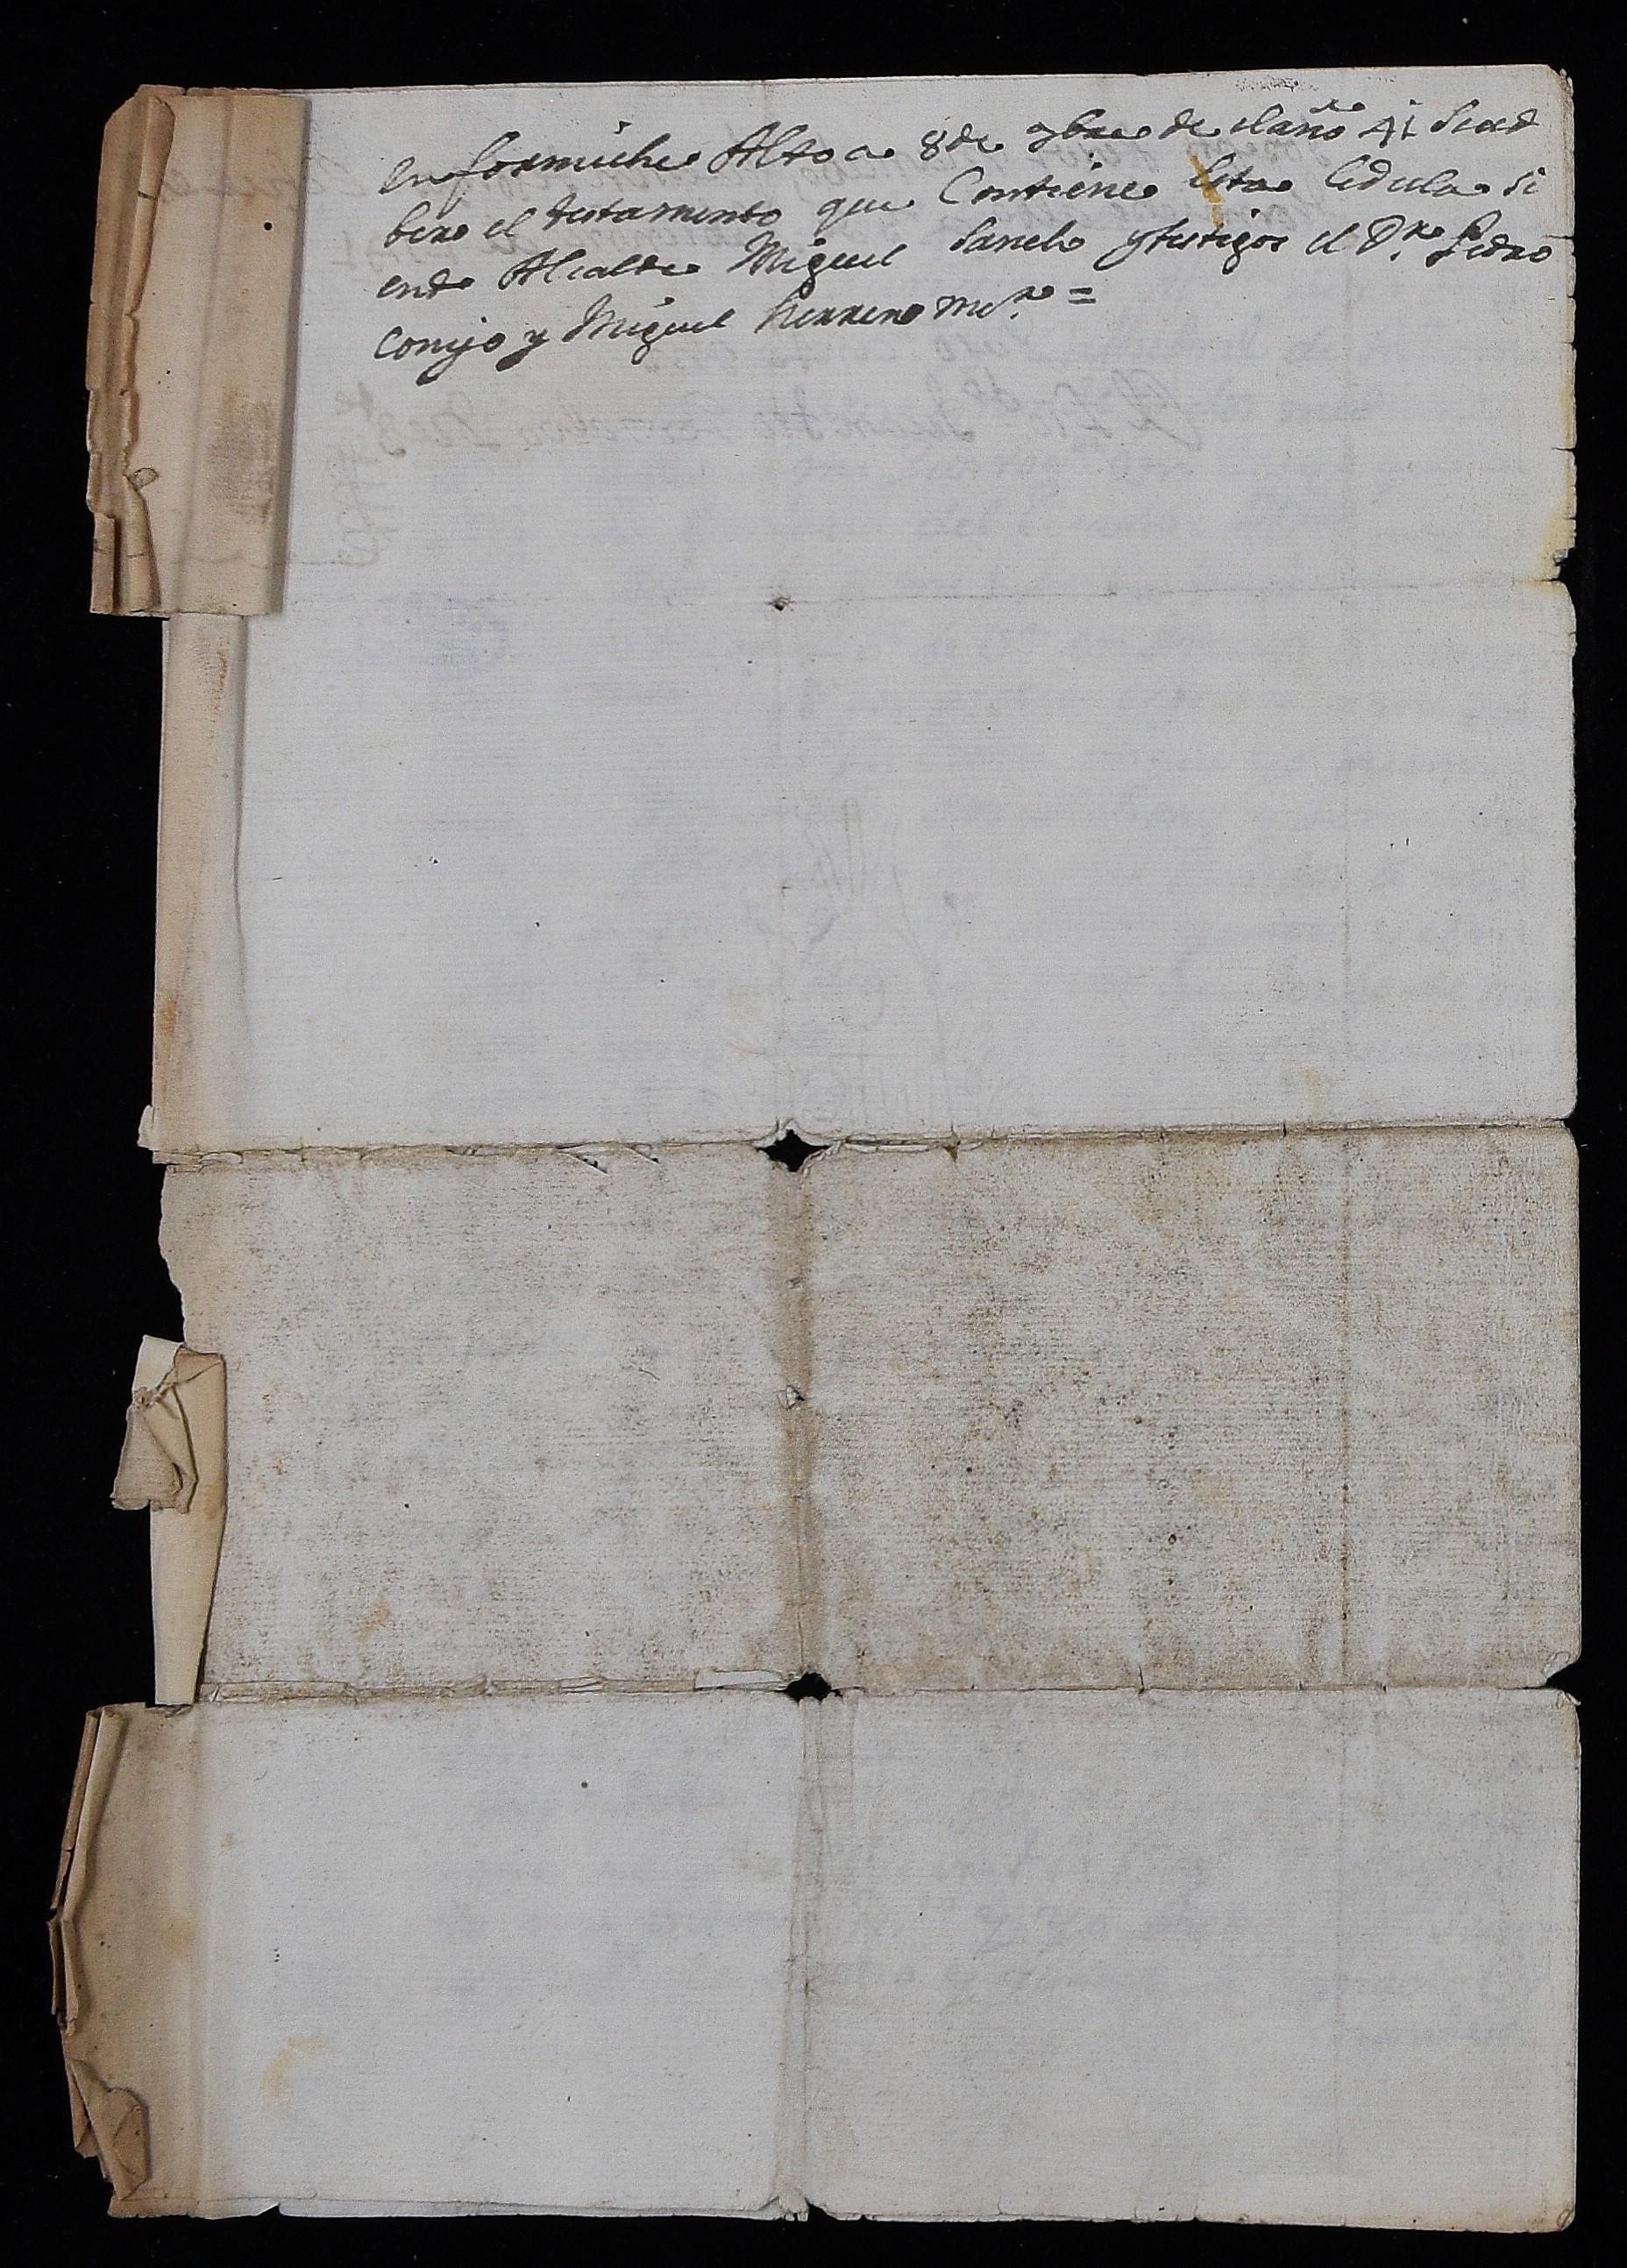 en formiche Alto a 8 de 9bre de el año 41 se ad
bero el testamento que Contiene esta Cedula si
endo Alcalde Miguel Sancho y testigos el Dr. Pedro
Conejo y Miguel Herrero